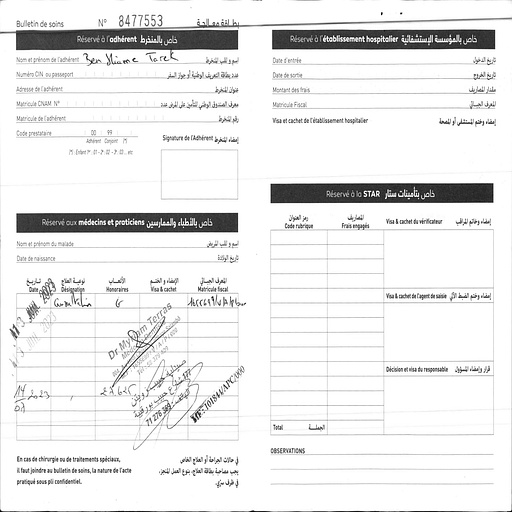 Bulletin de soins N° 8477553 بطاقة معالجة
Réservé à l'adhérent خاص بالمنخرط
Nom et prénom de l'adhérent Ben Slimane Tarek إسم و لقب المنخرط
Numéro CIN ou passeport عدد بطاقة التعريف الوطنية أو جواز السفر
Adresse de l'adhérent عنوان المنخرط
Matricule CNAM N° معرف الصندوق الوطني للتأمين على المرض عدد
Matricule de l'adhérent رقم المنخرط
Code prestataire 00 99
Adhérent Conjoint (*)
(*) : Enfant 1er : 01 - 2° : 02 - 3° : 03 ... etc
Signature de l'Adhérent إمضاء المنخرط
Réservé aux médecins et praticiens خاص بالأطباء والممارسين
Nom et prénom du malade إسم و لقب المريض
Date de naissance تاريخ الولادة
تاريخ نوعية العلاج الأتعاب الإمضاء و الختم المعرف الجبائي
Date Désignation Honoraires Visa & cachet Matricule fiscal
G
14
2023
71 276 369
En cas de chirurgie ou de traitements spéciaux,
il faut joindre au bulletin de soins, la nature de l'acte
pratiqué sous pli confidentiel.
في حالات الجراحة أو العلاج الخاص
يجب مصاحبة بطاقة العلاج، بنوع العمل المنجز،
في ظرف سري.
Réservé à l'établissement hospitalier خاص بالمؤسسة الإستشفائية
Date d'entrée تاريخ الدخول
Date de sortie تاريخ الخروج
Montant des frais مقدار المصاريف
Matricule Fiscal المعرف الجبائي
Visa et cachet de l'établissement hospitalier إمضاء وختم المستشفى أو المصحة
Réservé à la STAR خاص بتأمينات ستار
رمز العنوان المصاريف
Code rubrique Frais engagés
Visa & cachet du vérificateur إمضاء وخاتم المراقب
Visa & cachet de l'agent de saisie إمضاء وختم الضبط الآلي
Décision et visa du responsable قرار وإمضاء المسؤول
Total الجملة
OBSERVATIONS